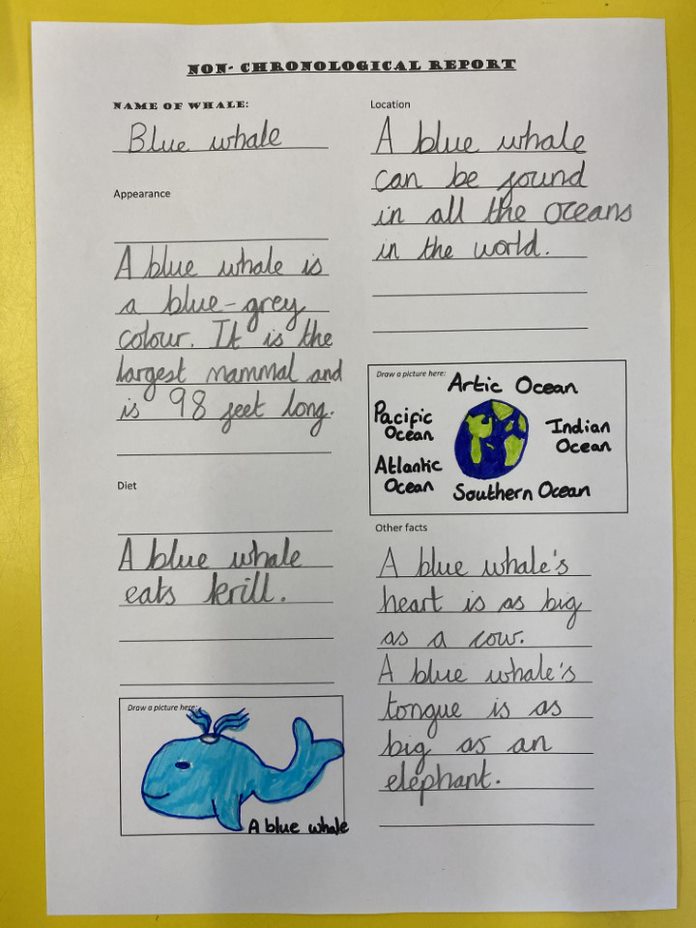 NON- CHRONOLOGICAL REPORT
NAME OF WHALE:
Blue whale
Appearance
A blue whale is
a blue-grey
colour. It is the
largest mammal and
is 98 feet long.
Diet
A blue whale
eats krill.
Draw a picture here:
A blue whale
Location
A blue whale
can be found
in all the oceans
in the world.
Draw a picture here:
Artic Ocean
Pacific
Ocean
Atlantic
Ocean
Indian
Ocean
Southern Ocean
Other facts
A blue whale's
heart is as big
as a cow.
A blue whale's
tongue is as
big as an
elephant.